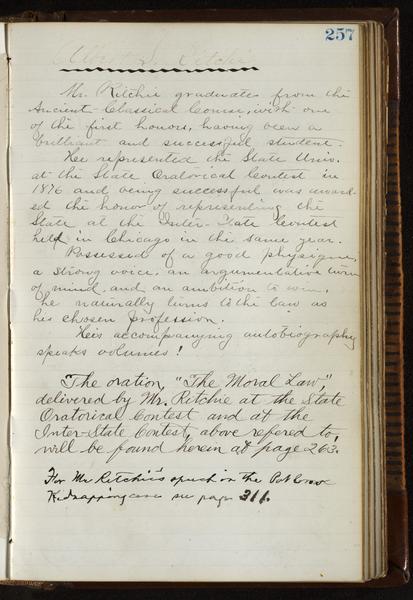 257
Ritchie
Mr. Ritchie graduates from the
Ancient Classical Course, with one
of the first honors, having been a
brilliant and successful student.
He represented the State Univ.
at the State Oratorical Contest in
1876 and being successful was award-
ed the honor of representing the
State at the Inter-State Contest
held in Chicago in the same year.
Possessed of a good physique,
a strong voice, an argumentative turn
of mind, and an ambition to win,
he naturally turns to the law as
his chosen profession.
His accompanying autobiography
speaks volumes!
The oration, "The Moral Law",
delivered by Mr. Ritchie at the State
Oratorical Contest and at the
Inter-State Contest, above refered to,
will be found herein at page 263.
For Mr Ritchie's speech in the Pat Crowe
Kidnapping case see page 311.